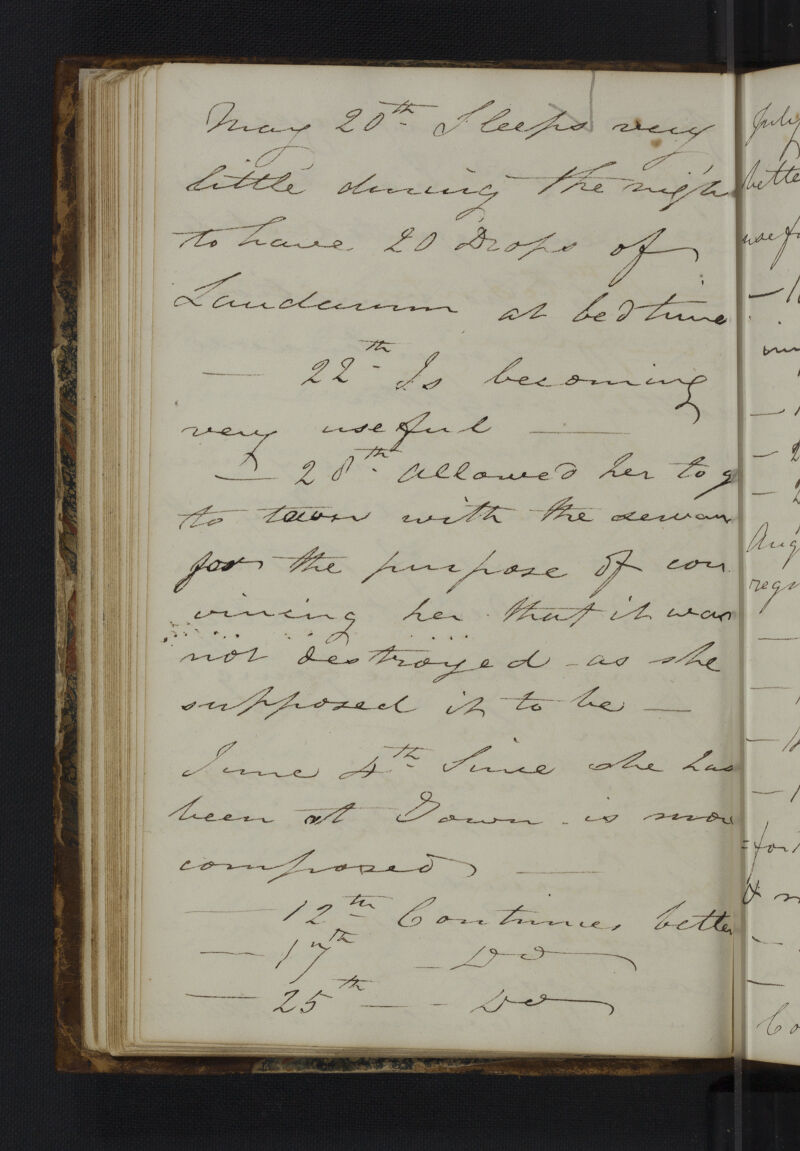 May 20th Sleeps very
little during the nigh
to have 20 Drops of
Laudanum at bedtime
— 22th Is becoming
very useful —
— 28th Allowed her to g
to town with the servan
for the purpose of con
vincing her that it was
not destroyed - as she
supposed it to be —
June 4th Since she has
been at Town - is more
composed —
— 12th Continues better
— 17th — Do
— 25th — - Do
July
bette
usef
Aug
regu
Co